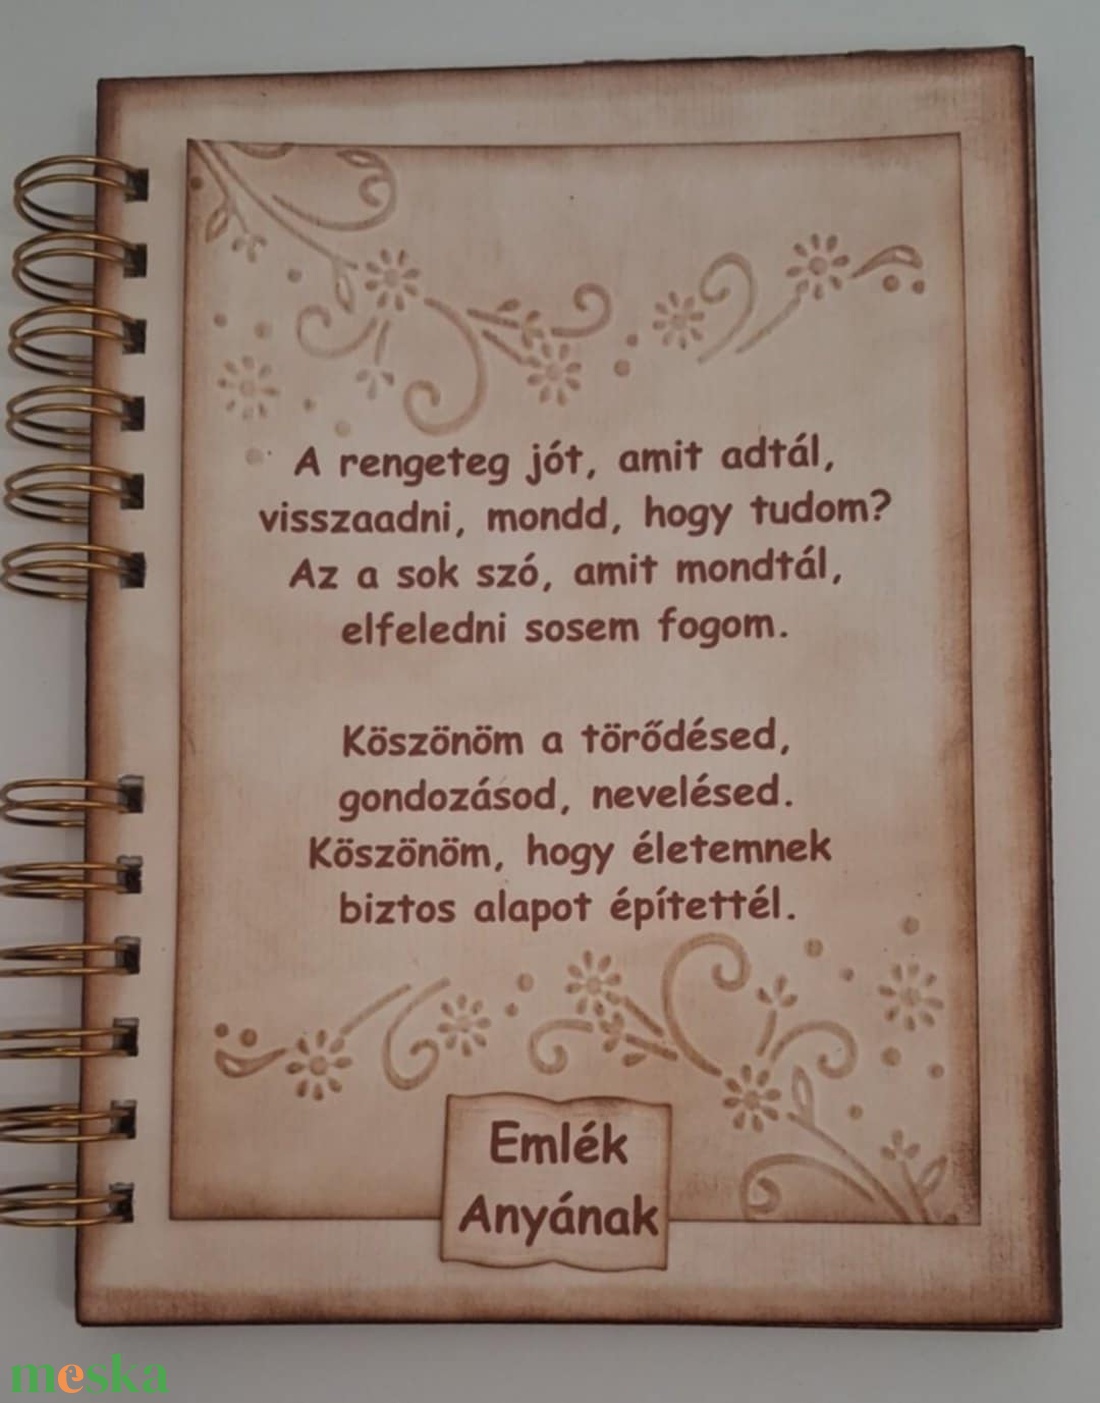 A rengeteg jót, amit adtál,
visszaadni, mondd, hogy tudom?
Az a sok szó, amit mondtál,
elfeledni sosem fogom.
Köszönöm a törődésed,
gondozásod, nevelésed.
Köszönöm, hogy életemnek
biztos alapot építettél.
Emlék
Anyának
meska